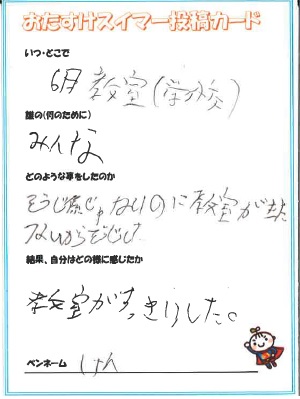 おたすけスイマー投稿カード
いつ・どこで
6月 教室(学校)
誰の(何のために)
みんな
どのような事をしたのか
そうじ係じゃないのに教室がきた
ないからそうじした
結果、自分はどの様に感じたか
教室がすっきりした。
ペンネーム